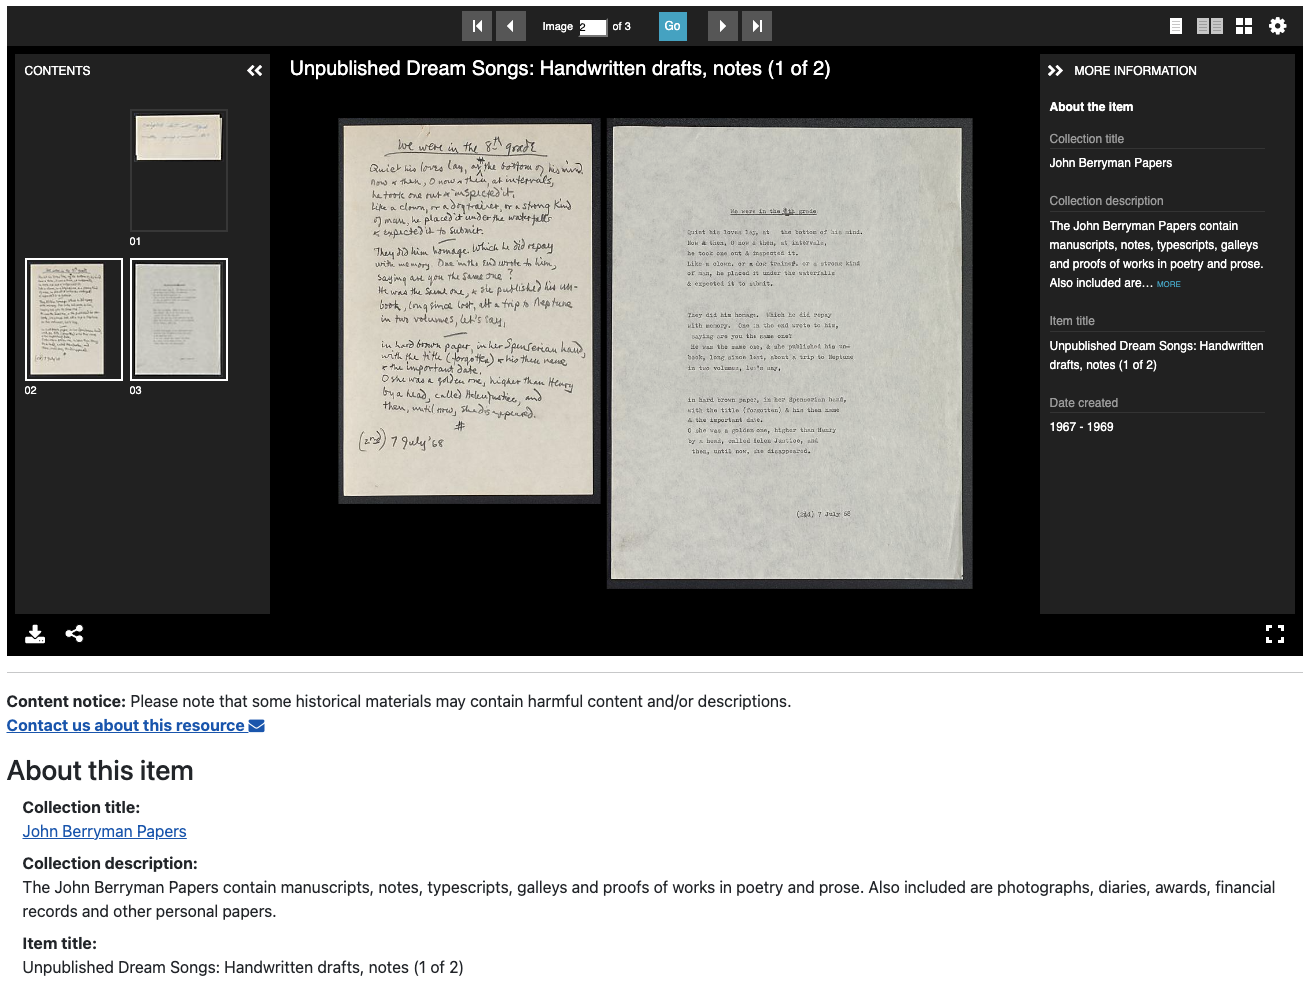 Image 2 of 3 Go
CONTENTS
01
02
03
Unpublished Dream Songs: Handwritten drafts, notes (1 of 2)
We were in the 8th grade
Quiet his loves lay, at the bottom of his mind.
Now & then, O now & then, at intervals,
he took one out & inspected it.
Like a clown, or a dog trainer, or a strong kind
of man, he placed it under the waterfalls
& expected it to submit.
They did him homage. Which he did repay
with memory. One in the end wrote to him,
saying are you the same one?
He was the same one, & she published his un-
book, long since lost, abt a trip to Neptune
in two volumes, let's say,
in hard brown paper, in her Spenserian hand,
with the title (forgotten) & his then name
& the important date.
O she was a golden one, higher than Henry
by a head, called Helen Justice, and
then, until now, she disappeared.
#
(2nd) 7 July '68
We were in the 8th grade
Quiet his loves lay, at the bottom of his mind.
Now & then, O now & then, at intervals,
he took one out & inspected it.
Like a clown, or a dog trainer, or a strong kind
of man, he placed it under the waterfalls
& expected it to submit.
They did him homage. Which he did repay
with memory. One in the end wrote to him,
saying are you the same one?
He was the same one, & she published his un-
book, long since lost, about a trip to Neptune
in two volumes, let's say,
in hard brown paper, in her Spenserian hand,
with the title (forgotten) & his then name
& the important date.
O she was a golden one, higher than Henry
by a head, called Helen Justice, and
then, until now, she disappeared.
7 July 68
MORE INFORMATION
About the item
Collection title
John Berryman Papers
Collection description
The John Berryman Papers contain
manuscripts, notes, typescripts, galleys
and proofs of works in poetry and prose.
Also included are... MORE
Item title
Unpublished Dream Songs: Handwritten
drafts, notes (1 of 2)
Date created
1967 - 1969
Content notice: Please note that some historical materials may contain harmful content and/or descriptions.
Contact us about this resource
About this item
Collection title:
John Berryman Papers
Collection description:
The John Berryman Papers contain manuscripts, notes, typescripts, galleys and proofs of works in poetry and prose. Also included are photographs, diaries, awards, financial
records and other personal papers.
Item title:
Unpublished Dream Songs: Handwritten drafts, notes (1 of 2)